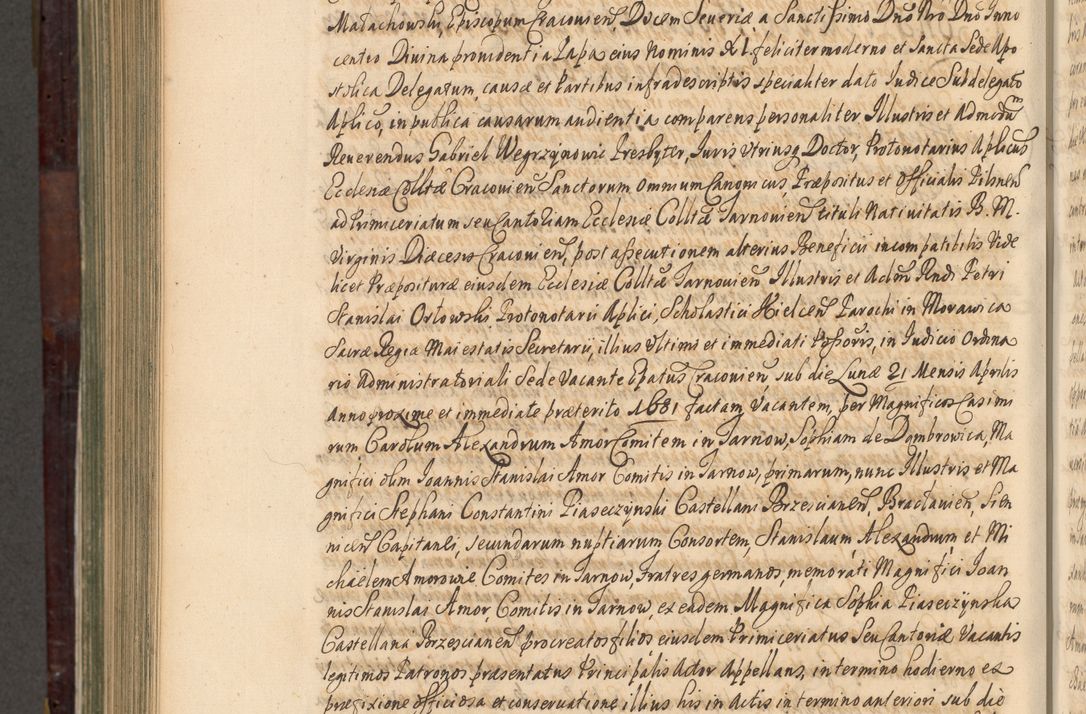 Małachowski, Episcopum Cracovien̄, Ducem Severiæ a Sanctissimo Dn̄o Nr̄o Dn̄o Inno
centio Divina providentia Papa eius Nominis XI. feliciter moderno et Sancta Sede Apo
stolica Delegatum, causæ et Partibus infradescriptis specialiter dato Iudice Subdelegato
Aplico, in publica causarum audientia comparens personaliter Illustris et Admodum
Reverendus Gabriel Węgrzynowic Presbyter, Iuris Utriusq Doctor, Protonotarius Aplicus
Ecclesiæ Colltæ Cracovien̄ Sanctorum Omnium Canonicus, Præpositus et Officialis Pilsnen̄
ad Primiceriatum seu Cantoriam Ecclesiæ Colltæ Tarnovien̄ tituli Nativitatis B. M.
Virginis Diæcesis Cracovien̄, post assecutionem alterius Beneficii incompatibilis Vide
licet Præposituræ eiusdem Ecclesiæ Colltæ Tarnovien̄ Illustris et Adm̄ Rndi Petri
Stanislai Orłowski Protonotarii Aplici, Scholastici Kielcen̄ Parochi in Morawica
Sacræ Regiæ Maiestatis Secretarii, illius Ultimi et immediati Possōris, in Iudicio Ordina
rio Administratoriali Sede Vacante Ep̄atus Cracovien̄ sub die Lunæ 21 Mensis Aprilis
Anno proxime et immediate præterito 1681 factam Vacantem, per Magnificos Casimi
rum Carolum Alexandrum Amor Comitem in Tarnow, Sophiam de Dombrowica, Ma
gnifici olim Ioannis Stanislai Amor Comitis in Tarnow, primarum, nunc Illustris et Ma
gnifici Stephani Constantini Piaseczynski Castellani Brzescianen̄, Bracłavien̄, Sien
nicen̄ Capitanei, secundarum nuptiarum Consortem, Stanislaum Alexandrum et Mi
chaelem Amorowie Comites in Tarnow, Fratres germanos, memorati Magnifici Ioan
nis Stanislai Amor, Comitis in Tarnow, ex eadem Magnifica Sophia Piaseczÿnska
Castellana Brzescianen̄ procreatos filios eiusdem Primiceriatus Seu Cantoriæ Vacantis
legitimos Patronos præsentatus Principalis Actor Appellans, in termino hodierno ex
præfixione officiosa et conservatione illius his in Actis in termino anteriori sub die